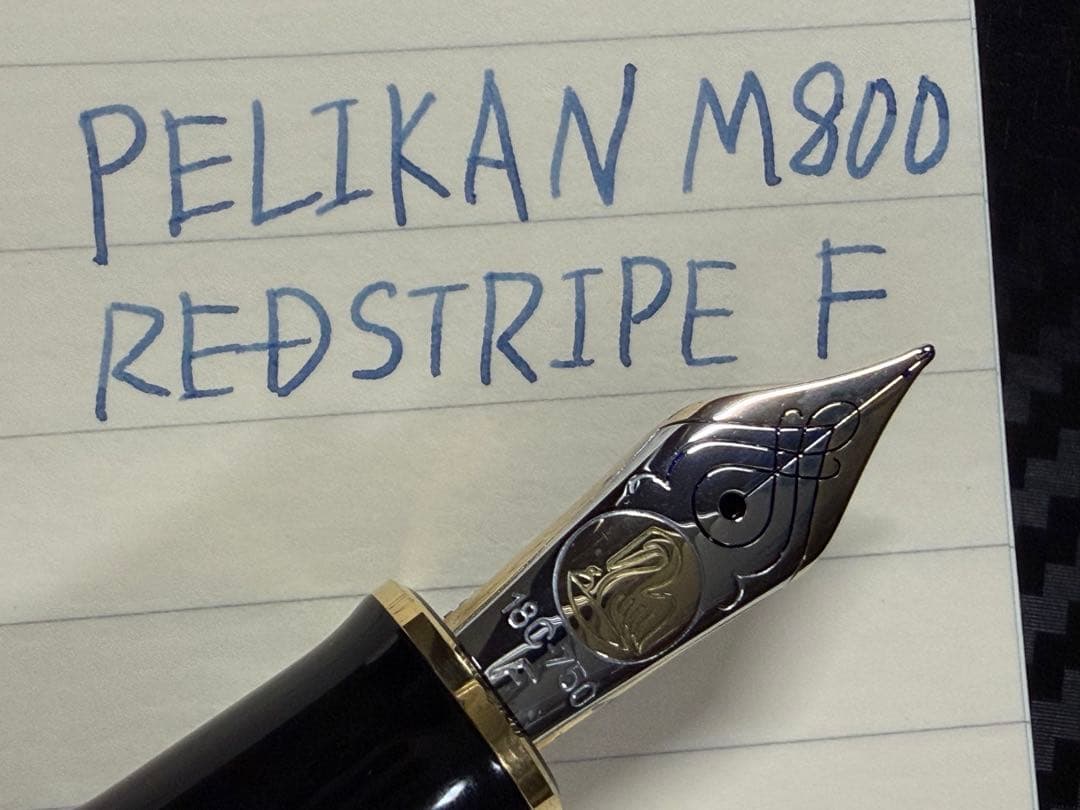 PELIKAN M800
REDSTRIPE F
18C-750
F